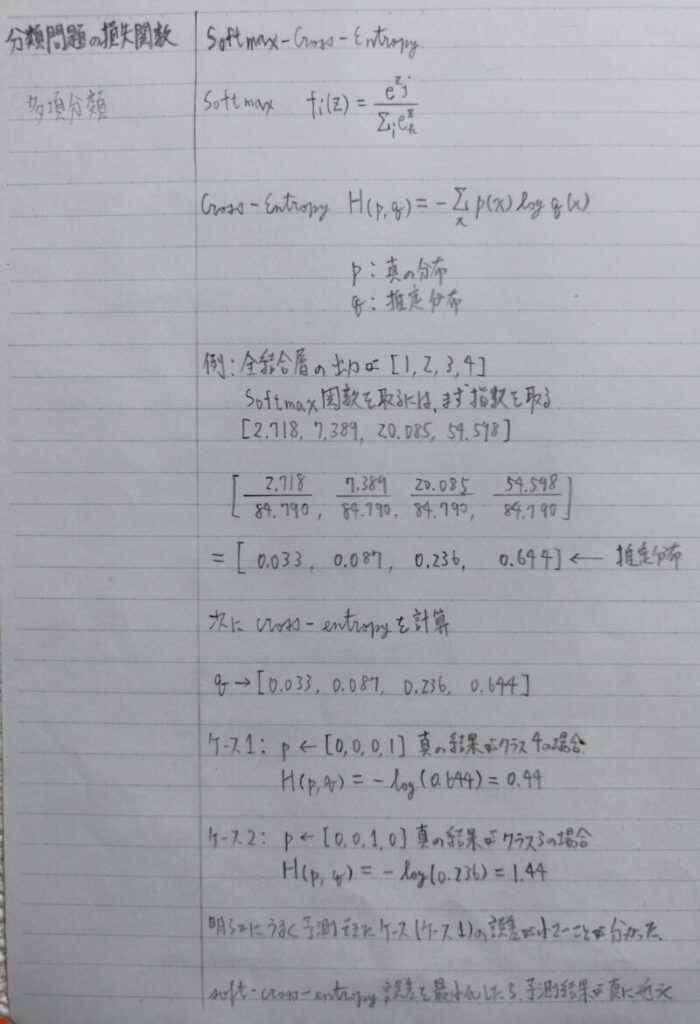 分類問題の損失関数
Softmax-Cross-Entropy
多項分類
Softmax fi(z) = e^zj / Σj e^z_k
Cross-Entropy H(p,q) = -Σx p(x) log q(x)
p：真の分布
q：推定分布
例：全結合層の出力が [1, 2, 3, 4]
Softmax関数を取るには、まず指数を取る
[2.718, 7.389, 20.085, 54.598]
[2.718/84.790, 7.389/84.790, 20.085/84.790, 54.598/84.790]
= [0.033, 0.087, 0.236, 0.644] ← 推定分布
次に cross-entropyを計算
q → [0.033, 0.087, 0.236, 0.644]
ケース1： p ← [0, 0, 0, 1] 真の結果がクラス4の場合
H(p,q) = -log(0.644) = 0.44
ケース2： p ← [0, 0, 1, 0] 真の結果がクラス3の場合
H(p,q) = -log(0.236) = 1.44
明らかにうまく予測できたケース(ケース1)の誤差が小さいことが分かった、
soft-cross-entropy誤差を最小化したら、予測結果が真に近